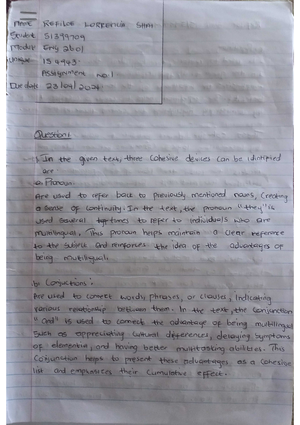 Name REFILOE LORRENCIA
Student 51399709
Module Eng 2601
Unique
Assignment no. 1
Due date
Question 1
1. In the given text, three Cohesive devices can be idintipied
are
a) Pronoun
Are used to refer back to previously mentioned nouns, Creating
a sense of continuity. In the text, the pronoun "they" is
used several times to refer to individuals who are
multilingual. This pronoun helps maintain a clear reference
to the subject and reinforces the idea of the advantages of
being multilingual.
b) Conjuctions:
Are used to connect words, phrases, or clauses, indicating
various relationship between them. In the text, the conjunction
"and" is used to connect the advantage of being multilingual
Such as appreciating cultural differences, delaying symptoms
of dementia, and having better multitasking abilities. This
Conjunction helps to present these advantages as a cohesive
list and emphasizes their cumulative effect.